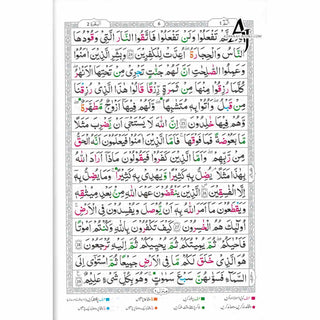 البقرة ٢
6
الٓمّٓ ١
لَّمْ تَفْعَلُوْا وَلَنْ تَفْعَلُوْا فَاتَّقُوا النَّارَ الَّتِیْ وَقُوْدُهَا
النَّاسُ وَالْحِجَارَةُ ۖۚ اُعِدَّتْ لِلْكٰفِرِیْنَ وَبَشِّرِ الَّذِیْنَ اٰمَنُوْا
وَعَمِلُوا الصّٰلِحٰتِ اَنَّ لَهُمْ جَنّٰتٍ تَجْرِیْ مِنْ تَحْتِهَا الْاَنْهٰرُ
كُلَّمَا رُزِقُوْا مِنْهَا مِنْ ثَمَرَةٍ رِّزْقًا قَالُوْا هٰذَا الَّذِیْ رُزِقْنَا
مِنْ قَبْلُ وَاُتُوْا بِهٖ مُتَشَابِهًا وَلَهُمْ فِیْهَاۤ اَزْوَاجٌ مُّطَهَّرَةٌ
وَّهُمْ فِیْهَا خٰلِدُوْنَ اِنَّ اللّٰهَ لَا یَسْتَحْیٖۤ اَنْ یَّضْرِبَ مَثَلًا
مَّا بَعُوْضَةً فَمَا فَوْقَهَا فَاَمَّا الَّذِیْنَ اٰمَنُوْا فَیَعْلَمُوْنَ اَنَّهُ الْحَقُّ
مِنْ رَّبِّهِمْ وَاَمَّا الَّذِیْنَ كَفَرُوْا فَیَقُوْلُوْنَ مَاذَاۤ اَرَادَ اللّٰهُ
بِهٰذَا مَثَلًا یُضِلُّ بِهٖ كَثِیْرًا وَّیَهْدِیْ بِهٖ كَثِیْرًا وَمَا یُضِلُّ بِهٖۤ
اِلَّا الْفٰسِقِیْنَ الَّذِیْنَ یَنْقُضُوْنَ عَهْدَ اللّٰهِ مِنْۢ بَعْدِ مِیْثَاقِهٖ
وَیَقْطَعُوْنَ مَاۤ اَمَرَ اللّٰهُ بِهٖۤ اَنْ یُّوْصَلَ وَیُفْسِدُوْنَ فِی الْاَرْضِ
اُولٰٓئِكَ هُمُ الْخٰسِرُوْنَ كَیْفَ تَكْفُرُوْنَ بِاللّٰهِ وَكُنْتُمْ اَمْوَاتًا
فَاَحْیَاكُمْ ثُمَّ یُمِیْتُكُمْ ثُمَّ یُحْیِیْكُمْ ثُمَّ اِلَیْهِ تُرْجَعُوْنَ
هُوَ الَّذِیْ خَلَقَ لَكُمْ مَّا فِی الْاَرْضِ جَمِیْعًا ثُمَّ اسْتَوٰۤی اِلَی
السَّمَآءِ فَسَوّٰىهُنَّ سَبْعَ سَمٰوٰتٍ وَهُوَ بِكُلِّ شَیْءٍ عَلِیْمٌ